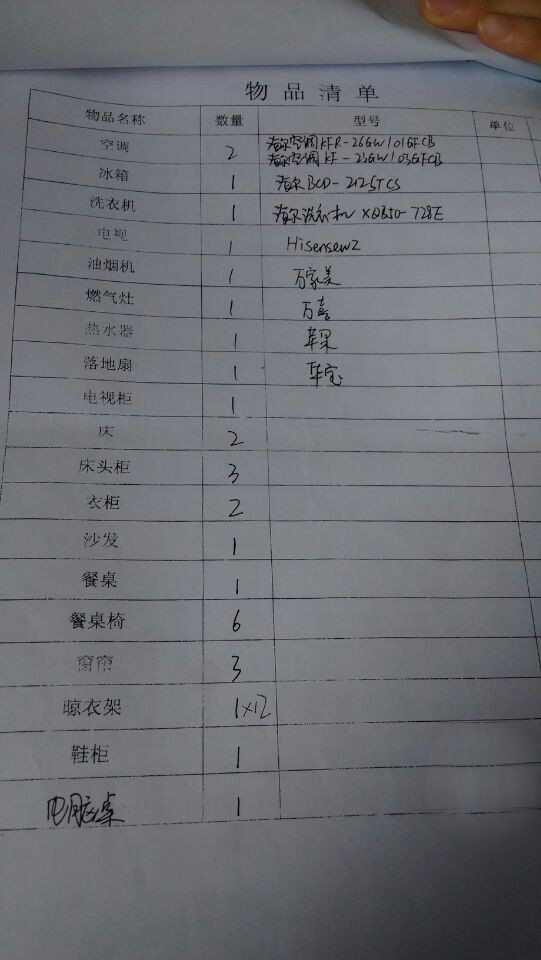 物品清单
物品名称 数量 型号 单位
空调 2 海尔空调KFR-26GW/01GFCB
海尔空调KF-23GW/03GFCB
冰箱 1 海尔BCD-212STCS
洗衣机 1 海尔洗衣机 XQB50-728E
电视 1 Hisense
油烟机 1 万家美
燃气灶 1 万喜
热水器 1
落地扇 1
电视柜 1
床 2
床头柜 3
衣柜 2
沙发 1
餐桌 1
餐桌椅 6
窗帘 3
晾衣架 1×12
鞋柜 1
电脑桌 1